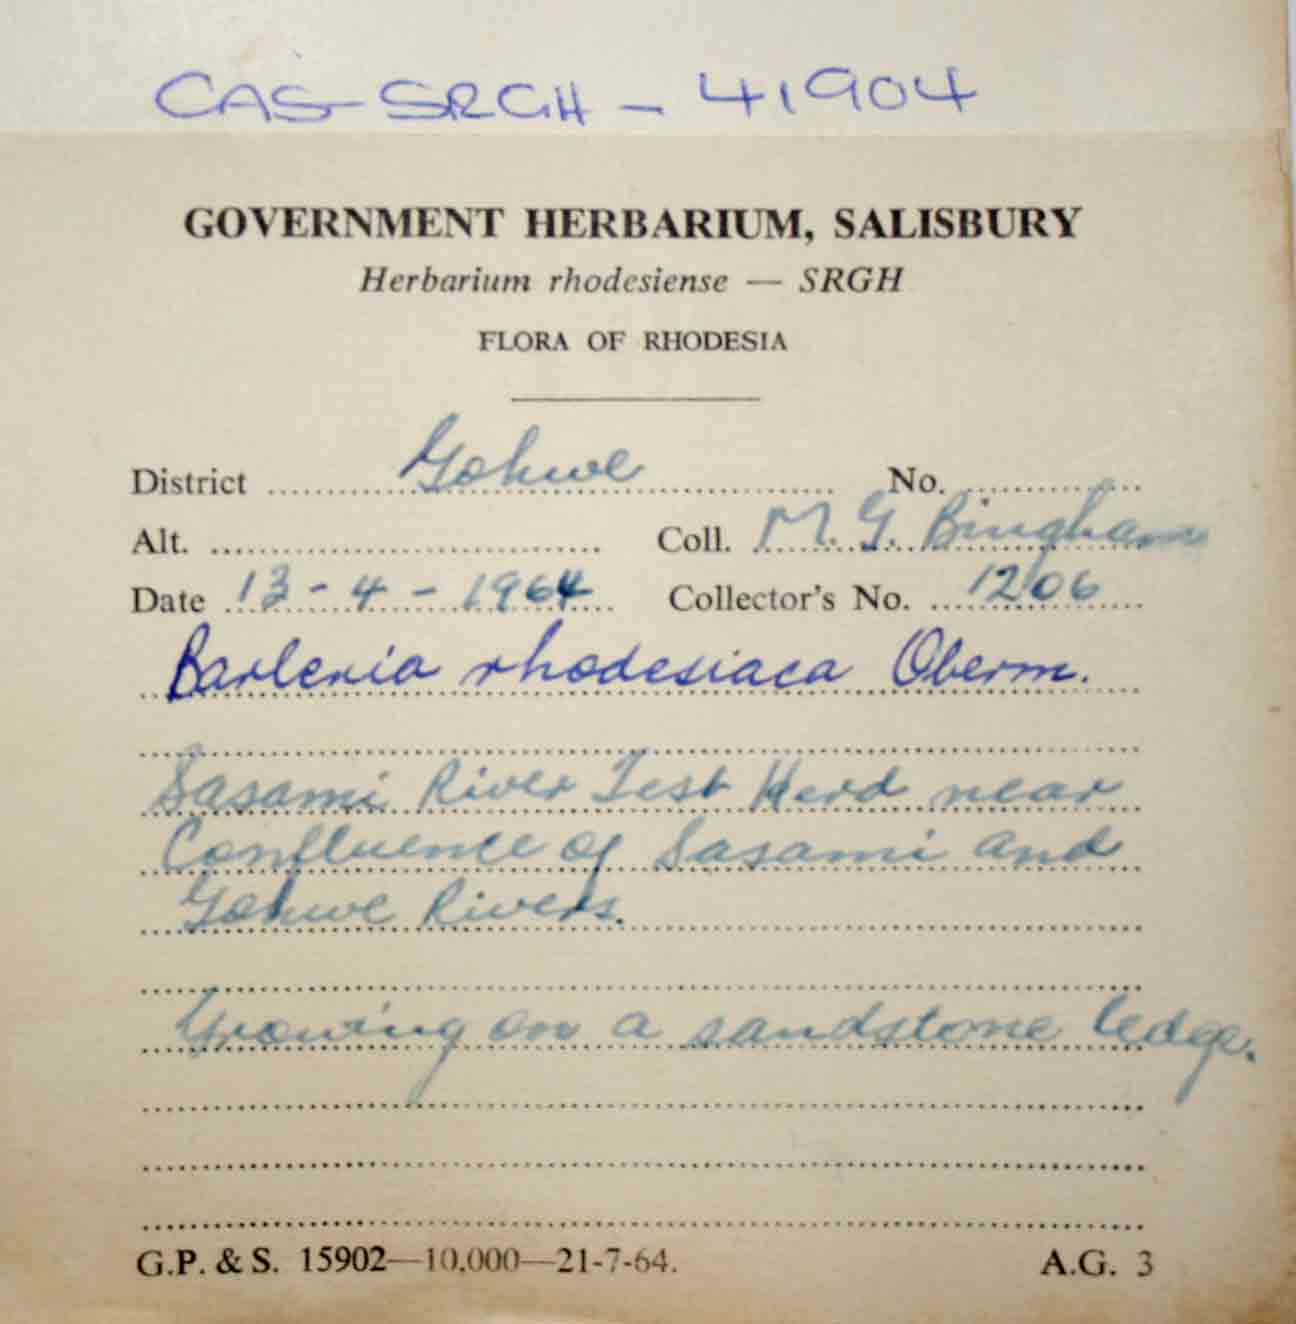 CAS-SRGH - 41904
GOVERNMENT HERBARIUM, SALISBURY
Herbarium rhodesiense — SRGH
FLORA OF RHODESIA
District Gokwe No.
Alt. Coll. M. G. Bingham
Date 13-4-1964 Collector's No. 1206
Barleria rhodesiaca Oberm.
Sasami River Test Herd near
Confluence of Sasami and
Gokwe Rivers.
Growing on a sandstone ledge.
G.P. & S. 15902—10,000—21-7-64. A.G. 3